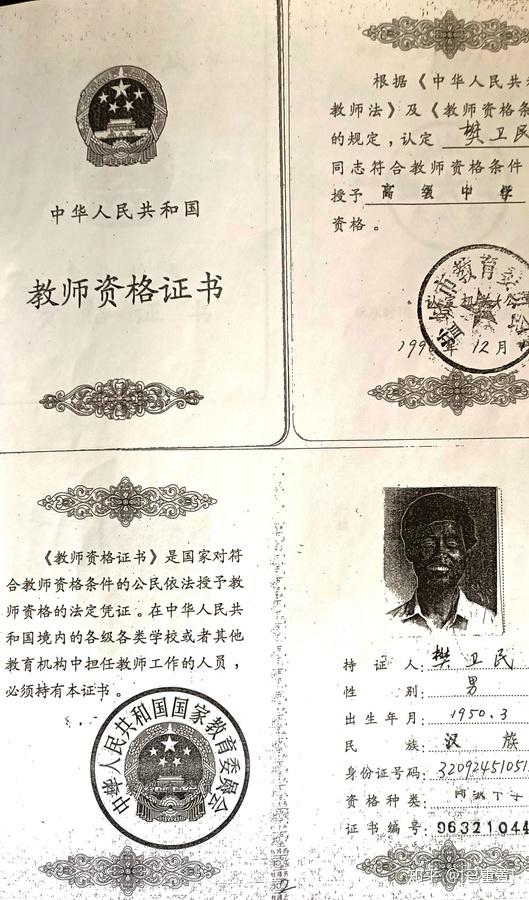 中华人民共和国
教师资格证书
根据《中华人民共
教师法》及《教师资格条
的规定，认定 樊卫民
同志符合教师资格条件
授予 高级中学
资格。
市教育委
12月
《教师资格证书》是国家对符
合教师资格条件的公民依法授予教
师资格的法定凭证。在中华人民共
和国境内的各级各类学校或者其他
教育机构中担任教师工作的人员，
必须持有本证书。
中华人民共和国国家教育委员会
持证人：樊卫民
性别：男
出生年月：1950.3
民族：汉族
身份证号码：32092451051
资格种类：
证书编号：96321044
2
知乎